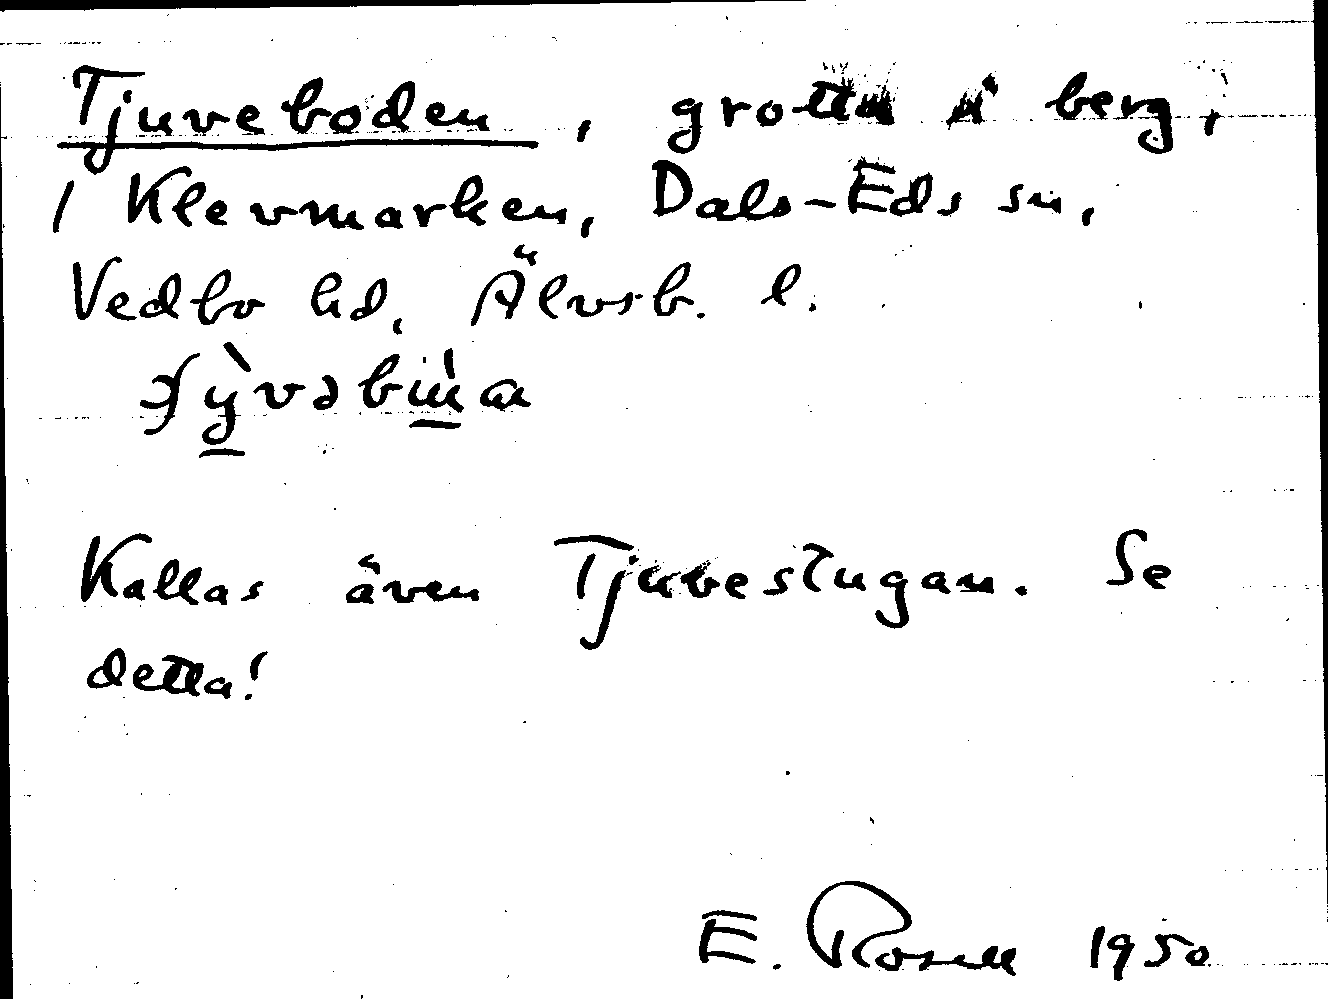 Tjuveboden, grotta i berg,
i Klevmarken, Dals-Eds sn,
Vedbo hd, Älvsb. l.
Kallas även Tjuvestugan. Se
detta!
E. Rosell 1950